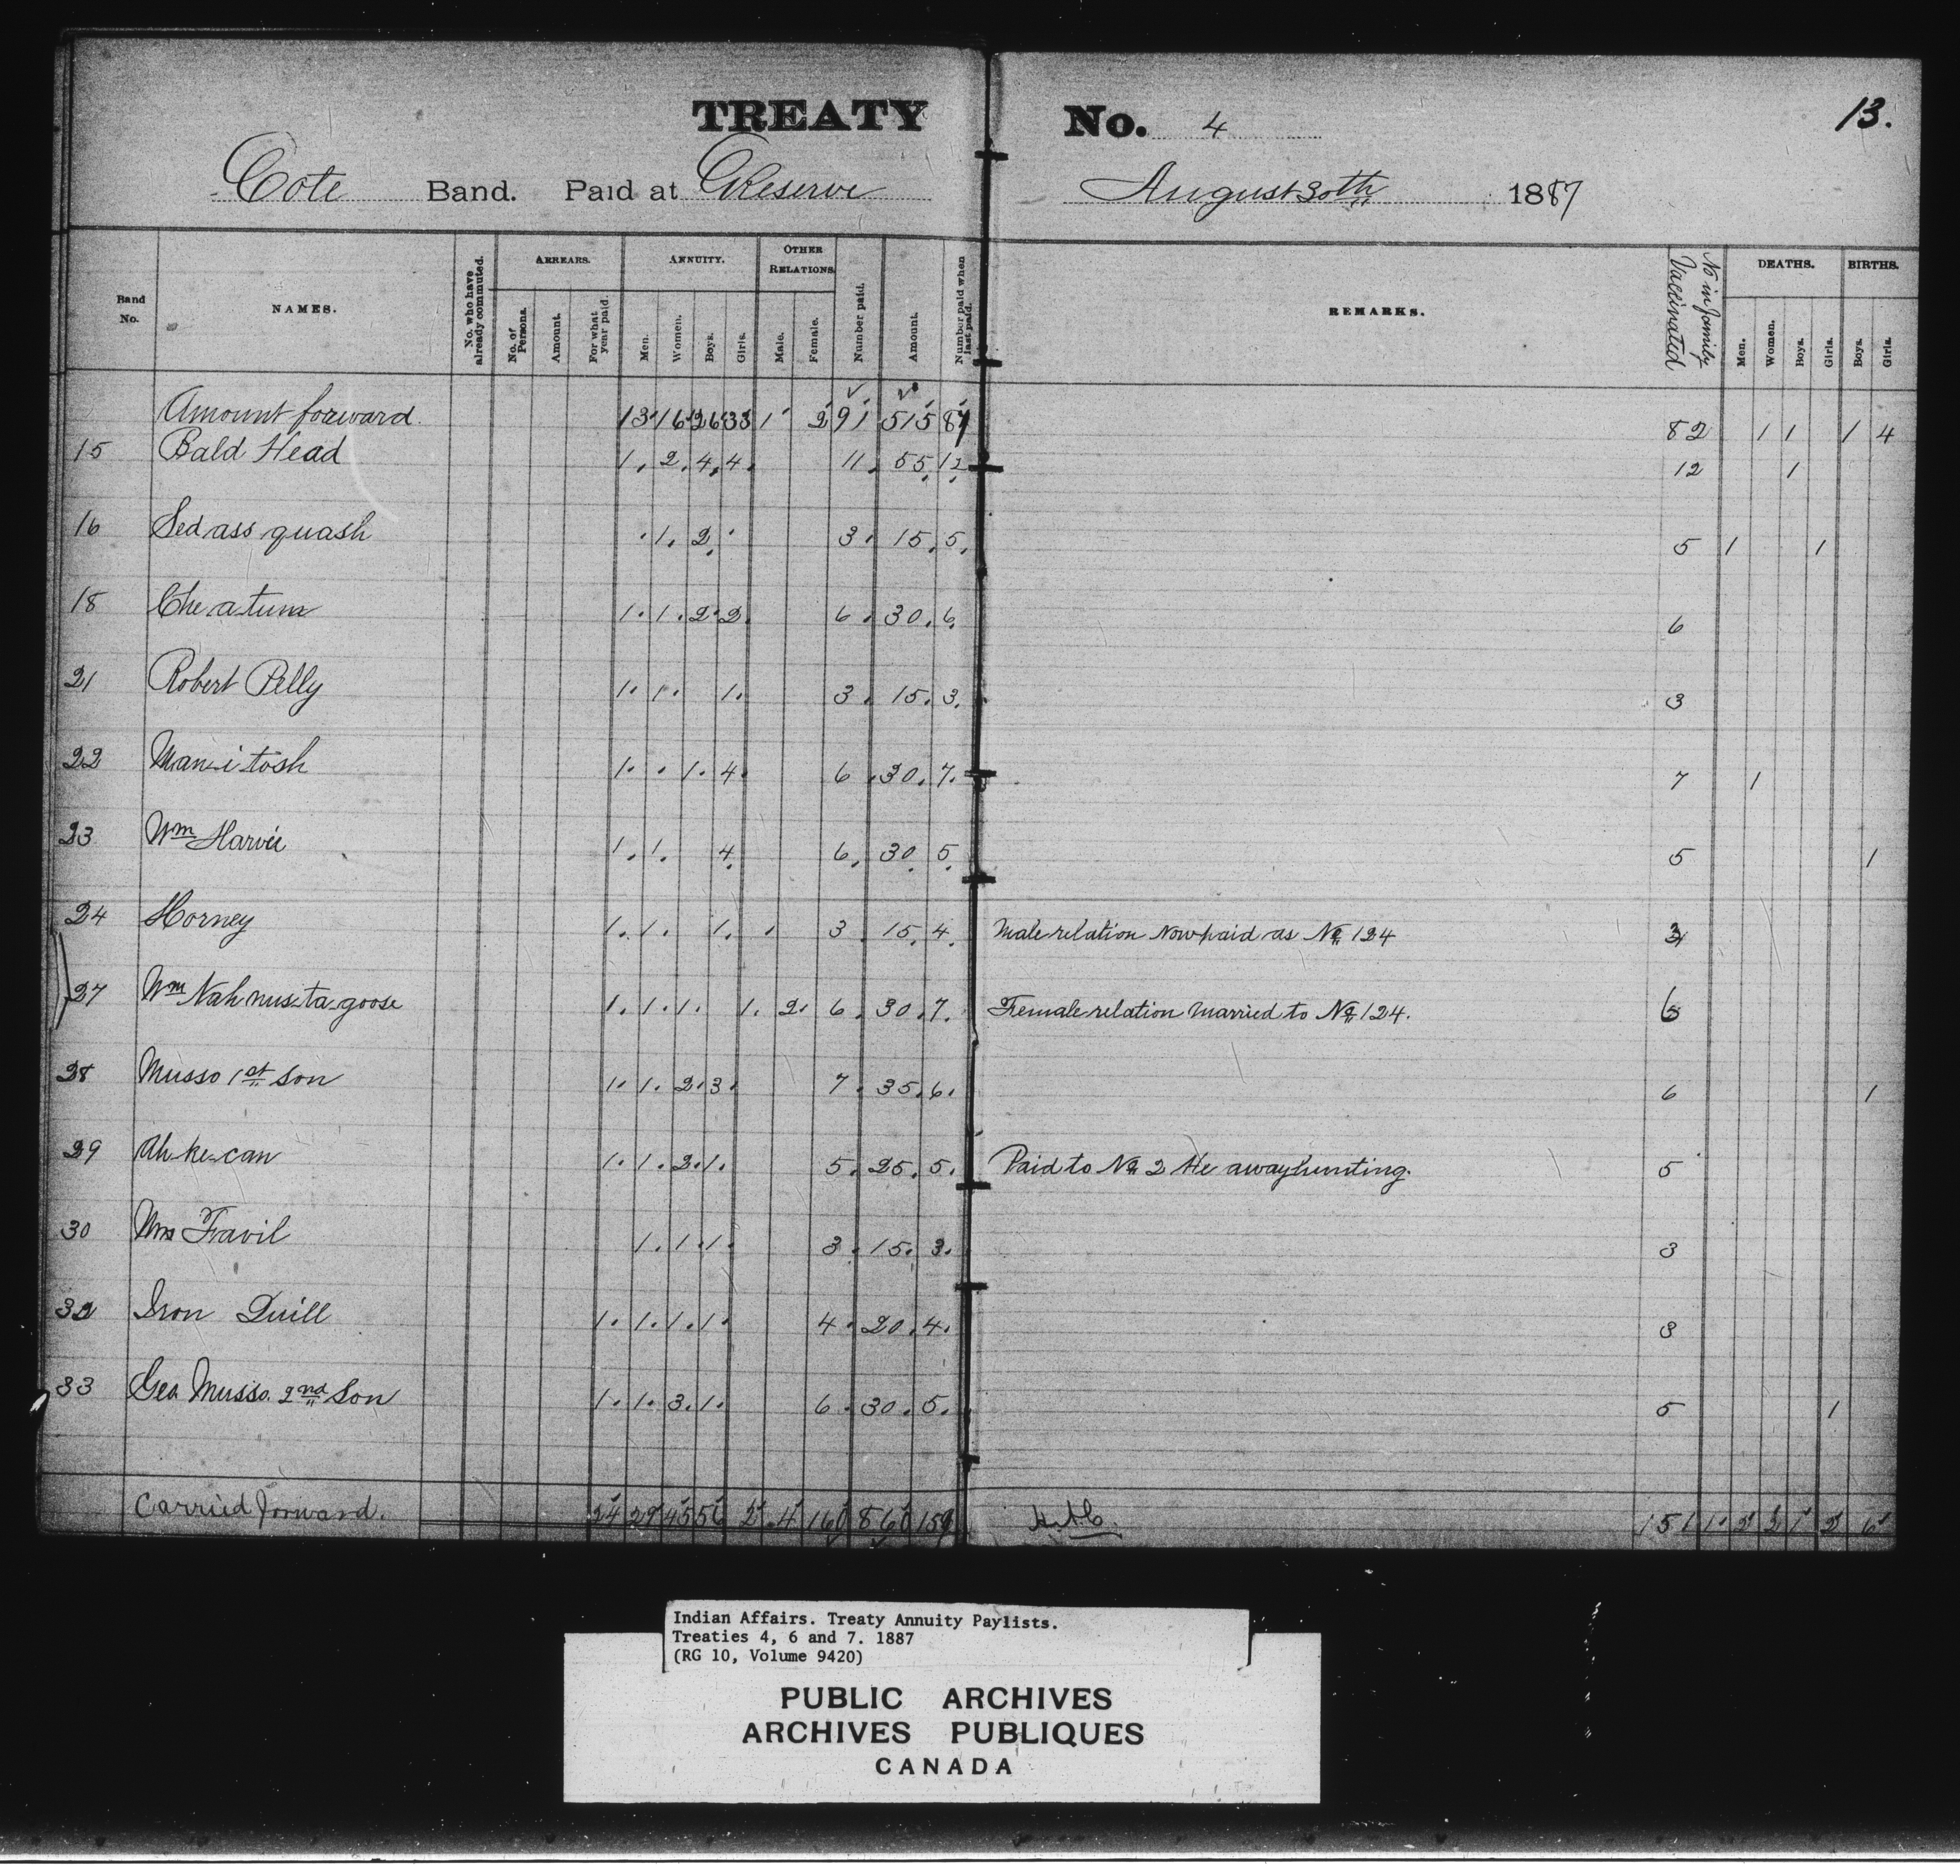 TREATY No. 4 13.
Cote Band. Paid at Reserve August 30th 1887
Band No. NAMES. No. who have already commuted. ARREARS. No. of Persons. Amount. For what year paid. ANNUITY. Men. Women. Boys. Girls. OTHER RELATIONS Male. Female. Number paid. Amount. Number paid when last paid. REMARKS. No in family Vaccinated DEATHS. Men. Women. Boys. Girls. BIRTHS. Boys. Girls.
Amount forward. 13 16 26 33 1 2 91 515 87 82 1 1 1 4
15 Bald Head 1. 2. 4. 4. 11. 55. 12. 12 1
16 Sed ass quash 1. 2. 3. 15. 5. 5 1 1
18 Che a tum 1. 1. 2. 2. 6. 30. 6. 6
21 Robert Pelly 1. 1. 1. 3. 15. 3. 3
22 Man-i tosh 1. 1. 4. 6. 30. 7. 7 1
23 Wm Harvie 1. 1. 4. 6. 30. 5. 5 1
24 Horney 1. 1. 1. 3. 15. 4. Male relation Now paid as No 124 3
27 Wm Nah nus ta goose 1. 1. 1. 1. 2. 6. 30. 7. Female relation Married to No 124. 6
28 Musso 1st Son 1. 1. 2. 3. 7. 35. 6. 6 1
29 Ah-ke-can 1. 1. 2. 1. 5. 25. 5. Paid to No 2 He away hunting. 5
30 Mrs Favil 1. 1. 1. 3. 15. 3. 3
32 Iron Quill 1. 1. 1. 1. 4. 20. 4. 3
33 Geo Musso 2nd Son 1. 1. 3. 1. 6. 30. 5. 5 1
Carried forward. 24 29 45 56 2 4 160 860 159 151 1 2 2 1 2 6
Indian Affairs. Treaty Annuity Paylists.
Treaties 4, 6 and 7. 1887
(RG 10, Volume 9420)
PUBLIC ARCHIVES
ARCHIVES PUBLIQUES
CANADA